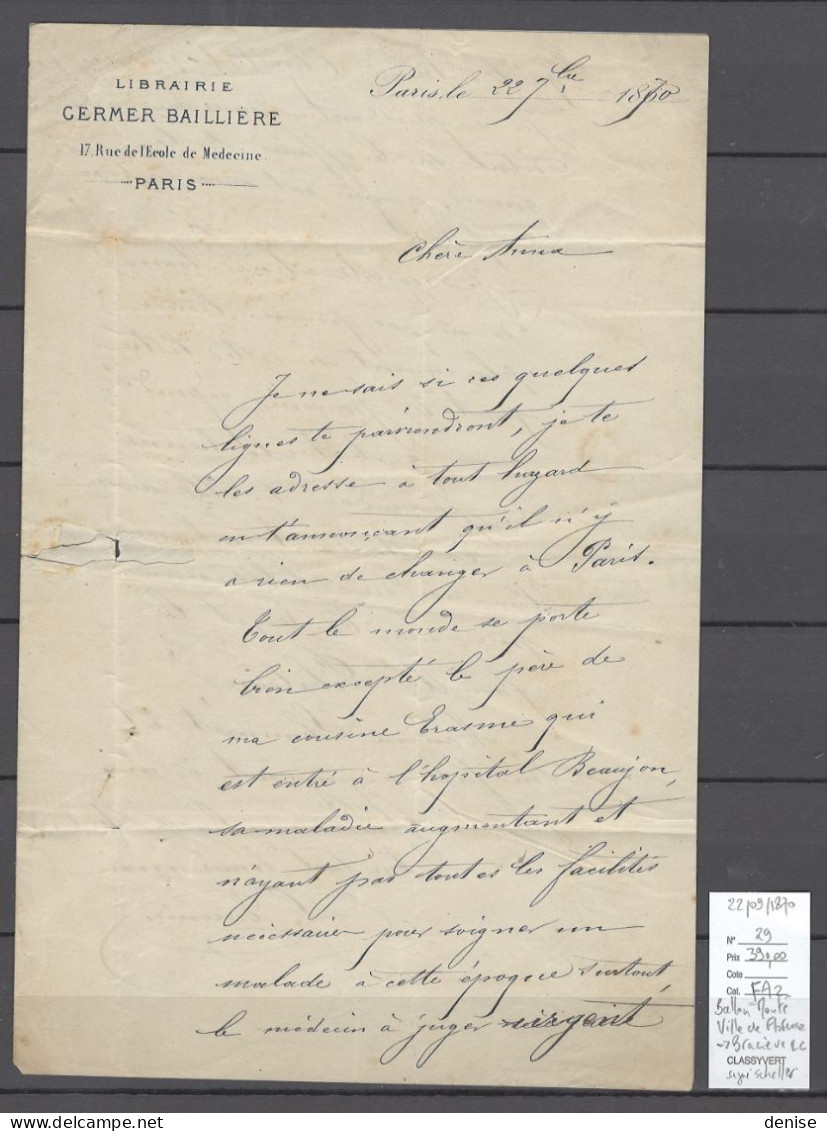 LIBRAIRIE
GERMER BAILLIÈRE
17, Rue de l'Ecole de Médecine.
PARIS
Paris, le 22 7bre 1870
Chère Anna
Je ne sais si ces quelques
lignes te parviendront, je te
les adresse à tout hazard
en t'annonçant qu'il n'y
a rien de changer à Paris.
Tout le monde se porte
bien excepté le père de
ma cousine Erasme qui
est entré à l'hopital Beaujon,
sa maladie augmentant et
n'ayant pas toutes les facilités
nécessaires pour soigner un
malade à cette époque surtout,
le médecin à juger urgent
22/09/1870
N° 29
Prix 390,00
Cote
Cat. FA2
Ballon Monté
Ville de Florence
→ Bracieux
CLASSYVERT
signé scheller
denise